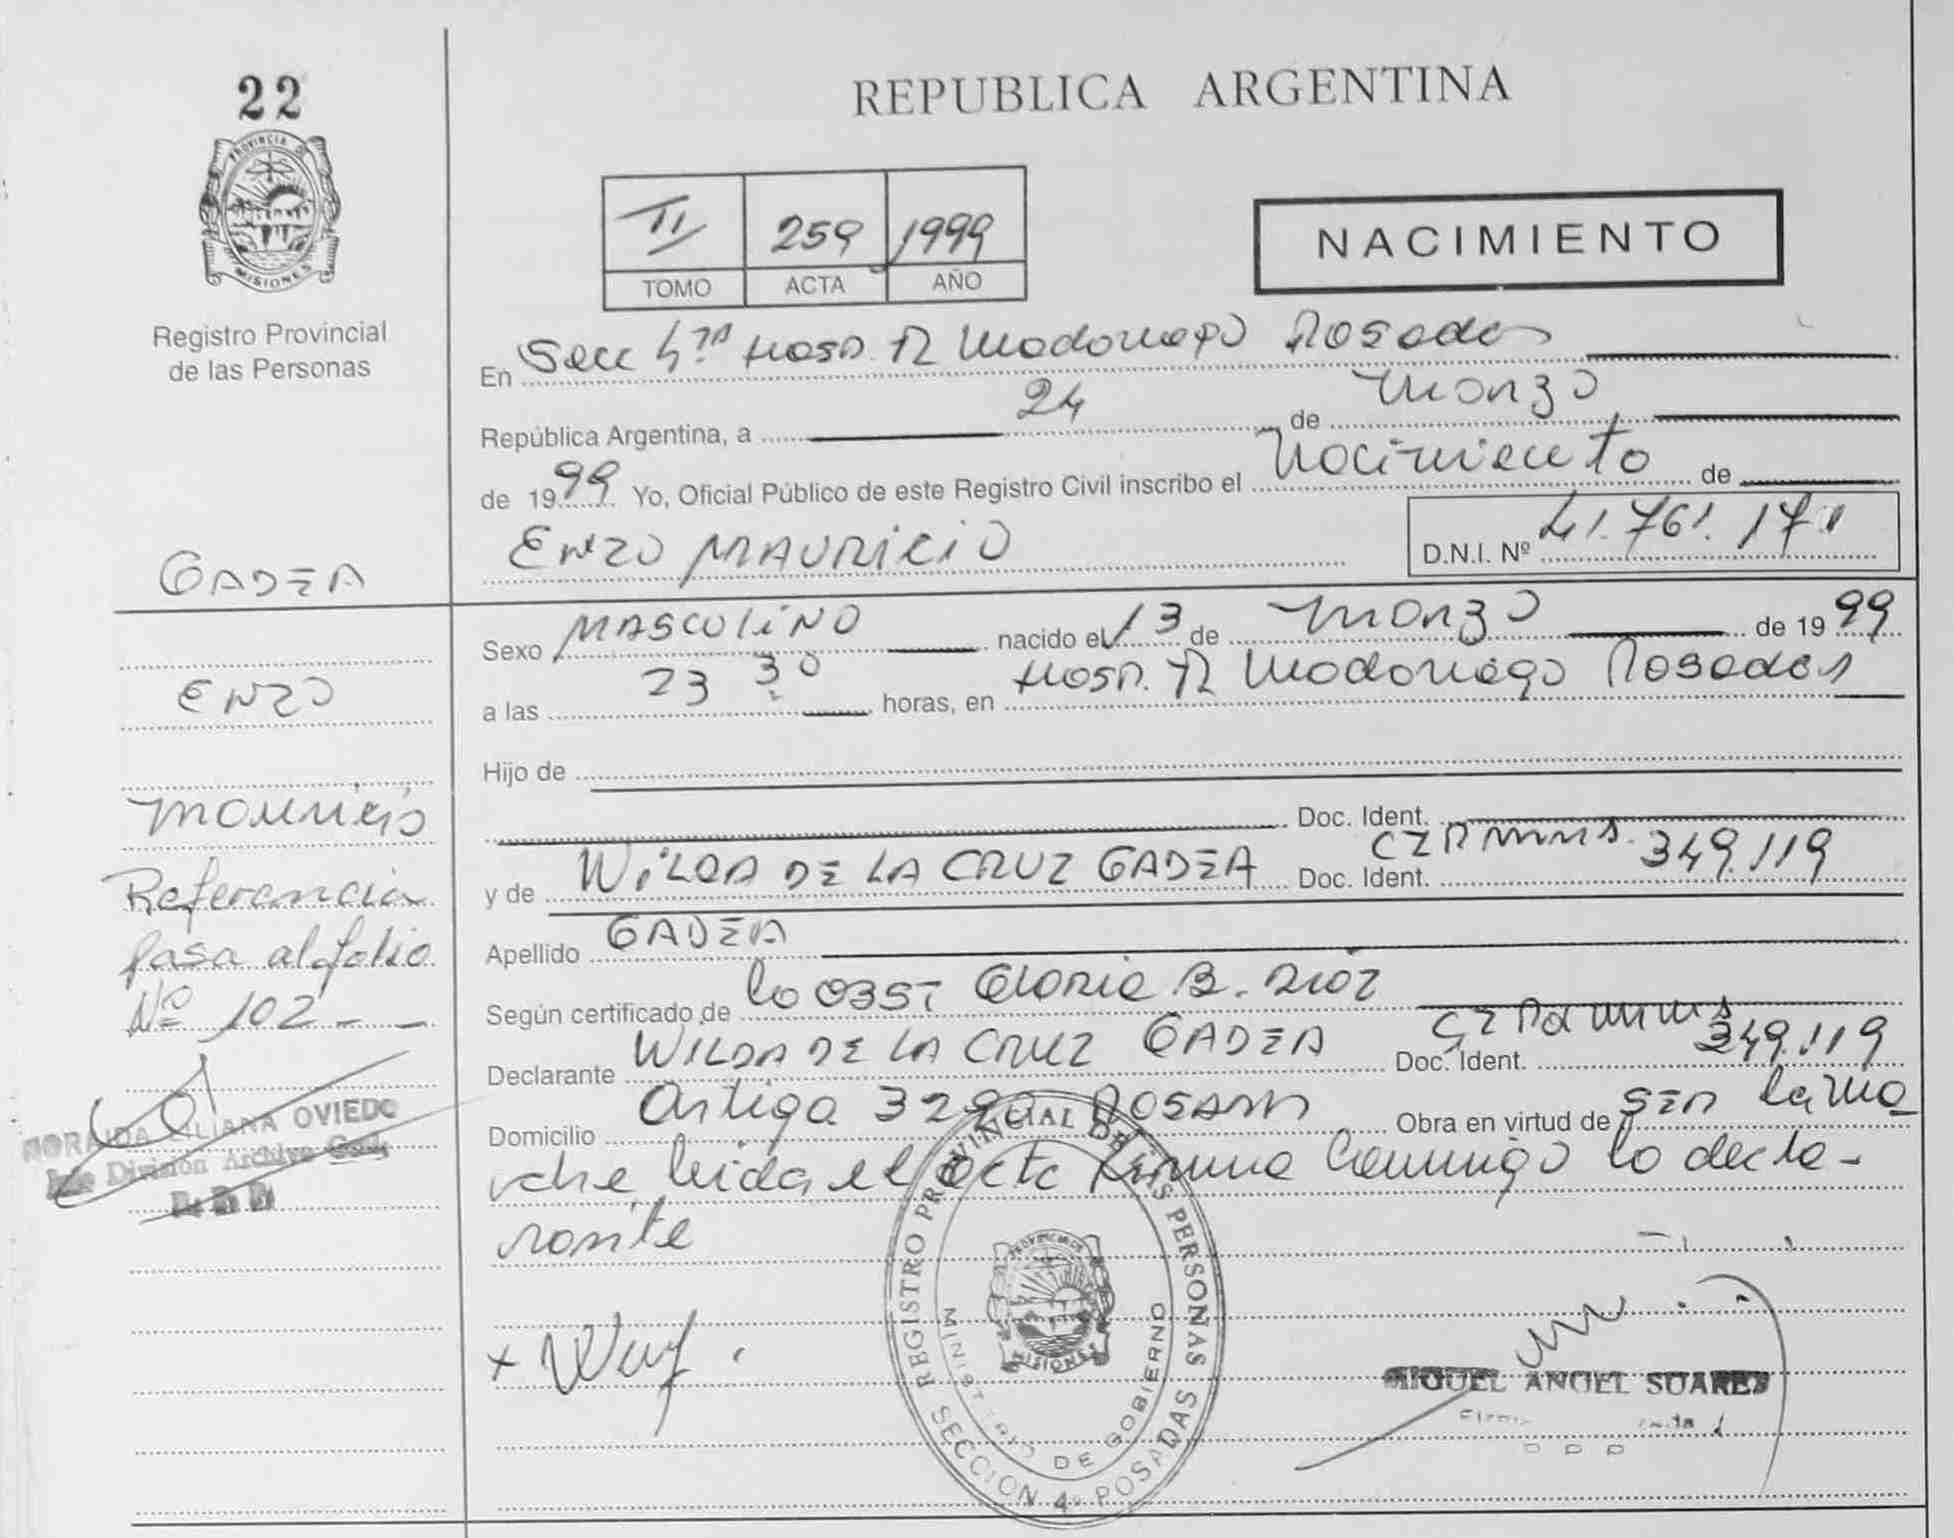 22
PROVINCIA DE
MISIONES
Registro Provincial
de las Personas
REPUBLICA ARGENTINA
II 259 1999
TOMO ACTA AÑO
NACIMIENTO
En Secc 4ta Hosp. R Madariaga Posadas
República Argentina, a 24 de Marzo
de 1999 Yo, Oficial Público de este Registro Civil inscribo el Nacimiento de
ENZO MAURICIO
D.N.I. Nº 41.761.171
GADEA
ENZO
Mauricio
Referencia
pasa al folio
Nº 102 - -
LILIANA OVIEDO
División Archivo Gral.
Sexo MASCULINO nacido el 13 de Marzo de 1999
a las 23 30 horas, en Hosp. R Madariaga Posadas
Hijo de
Doc. Ident.
y de WILDA DE LA CRUZ GADEA Doc. Ident. 349.119
Apellido GADEA
Según certificado de Gloria B. Diaz
Declarante WILDA DE LA CRUZ GADEA Doc. Ident. 349.119
Domicilio Artiga Posadas Obra en virtud de ser la ma
dre leida el acta firma conmigo la decla-
rante
REGISTRO PROVINCIAL DE LAS PERSONAS
MINISTERIO DE GOBIERNO
PROVINCIA DE
MISIONES
SECCION 4º POSADAS
MIGUEL ANGEL SUAREZ